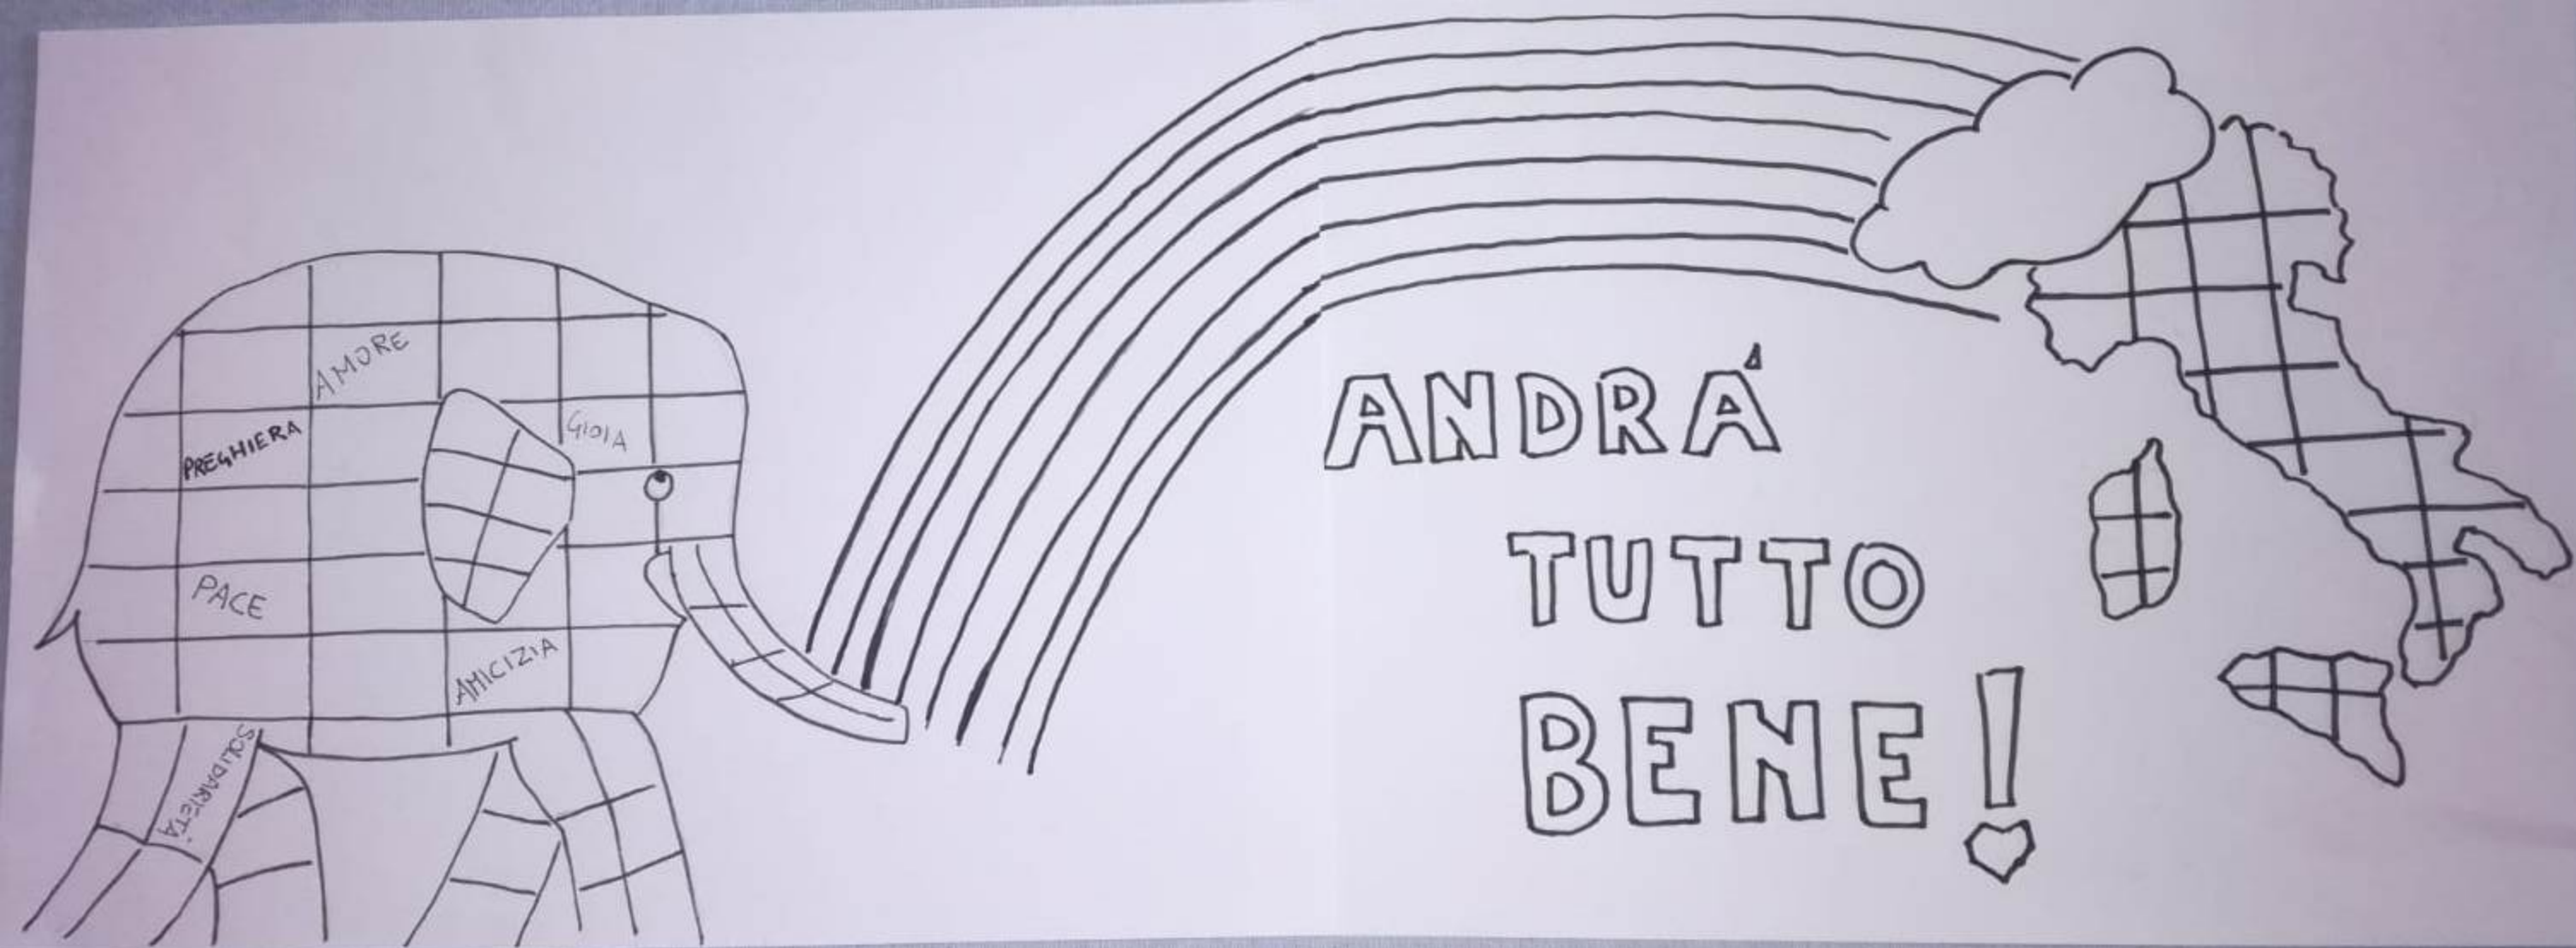 AMORE
PREGHIERA
GIOIA
PACE
AMICIZIA
SOLIDARIETÀ
ANDRÁ
TUTTO
BENE!